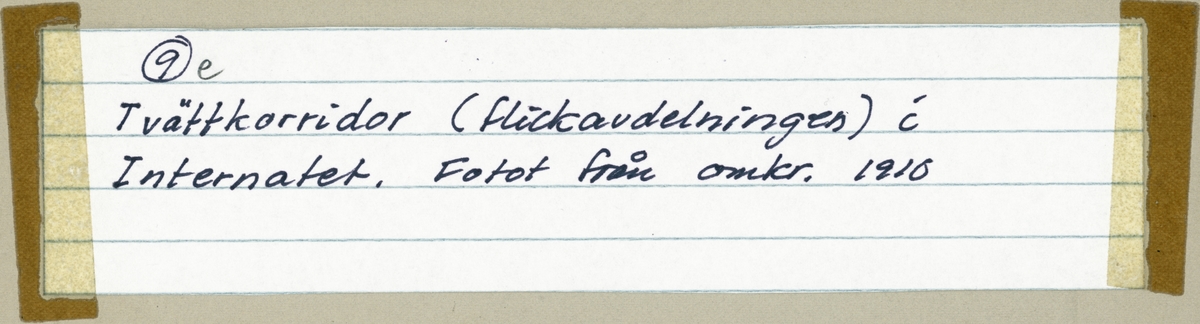 9 e
Tvättkorridor (flickavdelningen) i
Internatet. Fotot från omkr. 1910